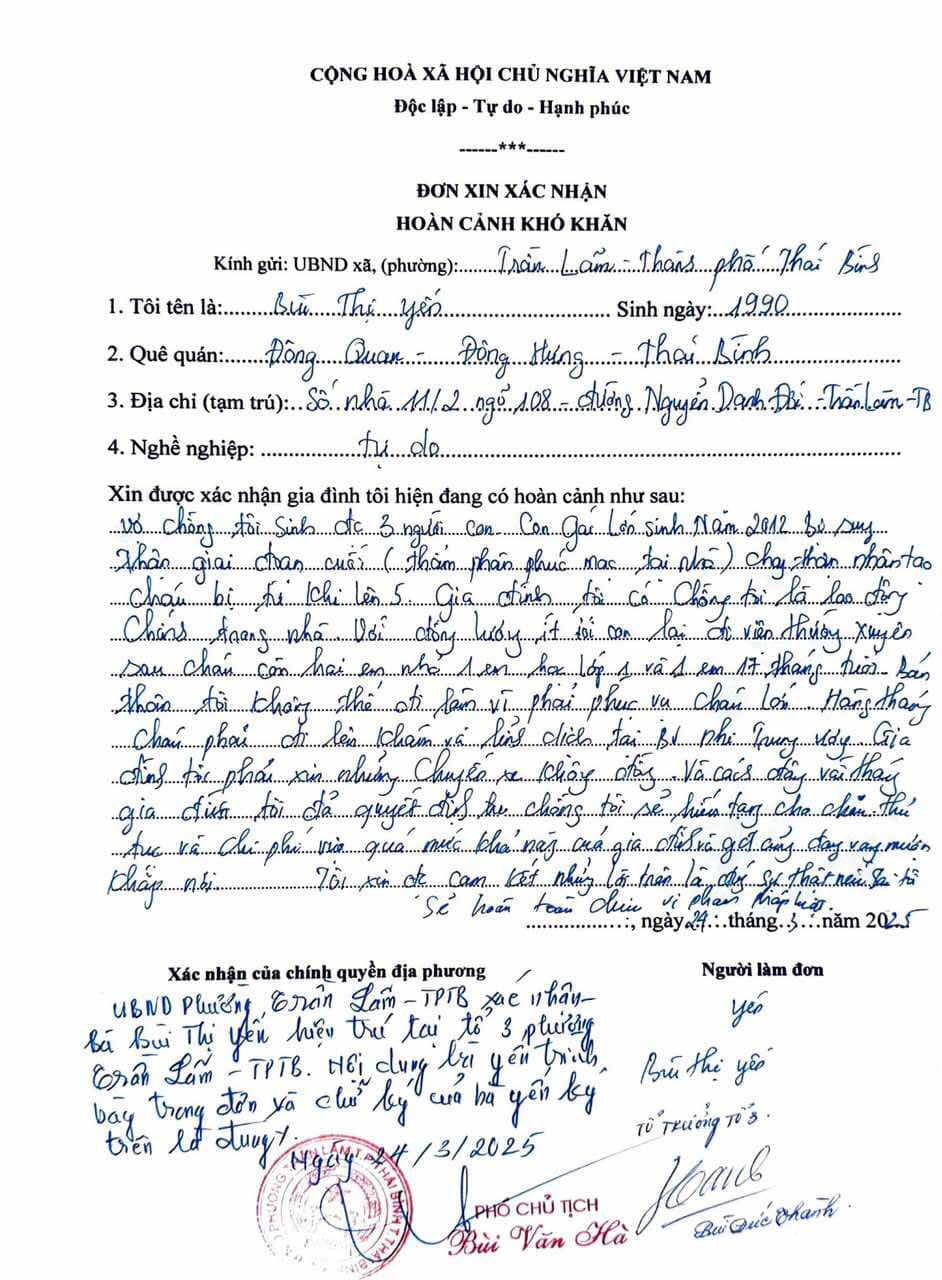 CỘNG HOÀ XÃ HỘI CHỦ NGHĨA VIỆT NAM
Độc lập - Tự do - Hạnh phúc
------***------
ĐƠN XIN XÁC NHẬN
HOÀN CẢNH KHÓ KHĂN
Kính gửi: UBND xã, (phường): Trần Lãm - Thành phố Thái Bình
1. Tôi tên là: Bùi Thị Yến Sinh ngày: 1990
2. Quê quán: Đông Quan - Đông Hưng - Thái Bình
3. Địa chỉ (tạm trú): Số nhà 11/2 ngõ 108 - đường Nguyễn Danh Đới - Trần Lãm - TB
4. Nghề nghiệp: tự do
Xin được xác nhận gia đình tôi hiện đang có hoàn cảnh như sau:
Vợ chồng tôi sinh đc 3 người con. Con Gái Lớn sinh Năm 2012 Bị suy
thận giai đoạn cuối (thẩm phân phúc mạc tại nhà) chạy thận nhân tạo
Cháu bị từ khi lên 5. Gia đình tôi có Chồng tôi là lao động
Chính trong nhà. Với đồng lương ít ỏi con lại đi viện thường xuyên
sau cháu còn hai em nhỏ 1 em học lớp 1 và 1 em 17 tháng tuổi. Bản
thân tôi không thể đi làm vì phải phục vụ cháu lớn. Hàng tháng
Cháu phải đi lên khám và lĩnh dịch tại BV nhi Trung ương. Gia
đình tôi phải xin những Chuyến xe không đồng. Và cách đây vài tháng
gia đình tôi đã quyết định chồng tôi sẽ hiến tạng cho cháu. Thủ
tục và Chi phí vừa quá mức khả năng của gia đình và giờ cũng đang vay mượn
khắp nơi. Tôi xin đc cam kết những lời trên là đúng sự thật nếu sai tôi
sẽ hoàn toàn chịu vi phạm pháp luật.
, ngày 24 tháng 3 năm 2025
Xác nhận của chính quyền địa phương Người làm đơn
UBND Phường Trần Lãm - TPTB xác nhận
bà Bùi Thị Yến hiện trú tại tổ 3 phường
Trần Lãm - TPTB. Nội dung bà Yến trình
bày trong đơn và chữ ký của bà Yến ký
trên là đúng.
Ngày 24/3/2025
Yến
Bùi Thị Yến
TỔ TRƯỞNG TỔ 3
PHÓ CHỦ TỊCH
Bùi Văn Hà
Bùi Đức Thành